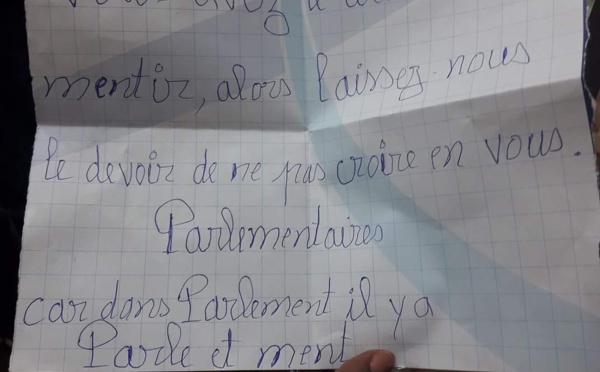 mentir, alors laissez-nous
le devoir de ne pas croire en vous.
Parlementaires
car dans Parlement il y a
Parle et ment